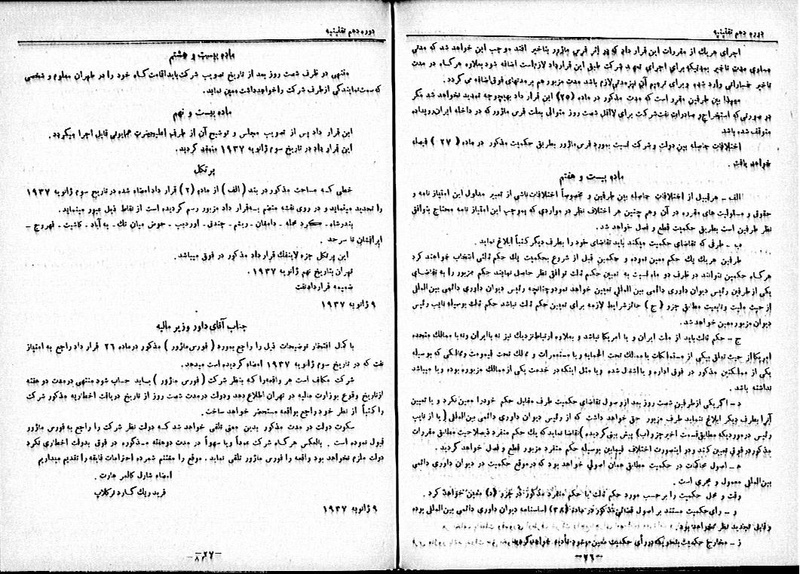 دوره دهم تقنینیه
اجرای هریک از مقررات این قرار داد که در اثر فرس ماژور بتاخیر افتد موجب این خواهد شد که مدتی
مساوی مدت تاخیر بمدتیکه برای اجرای تعهد شرکت طبق این قرارداد لازم است اضافه شود بعلاوه هرگاه در مدت
تاخیر خساراتی وارد شده و برای ترمیم آن نیز مدتی لازم باشد مدت مزبور هم بر مدتهای فوق اضافه می گردد.
معهذا بین طرفین مقرر است که مدت مذکور در ماده (۲۵) این قرار داد بهیچوجه تمدید نخواهد شد مگر
در صورتی که استخراج و صادرات نفت شرکت برای لااقل شصت روز متوالی بعلت فرس ماژور که در داخله ایران رویداده
متوقف شده باشد
اختلافات حاصله بین دولت و شرکت نسبت بمورد فرس ماژور بطریق حکمیت مذکور در ماده (۲۷) فیصله
خواهد یافت.
ماده بیست و هفتم
الف - هر قبیل از اختلافات حاصله بین طرفین و مخصوصاً اختلافات ناشی از تعبیر مدلول این امتیاز نامه و
حقوق و مسئولیت های مقرره در آن وهم چنین هر اختلاف نظر در مواردی که بموجب این امتیاز نامه محتاج بتوافق
نظر طرفین است بطریق حکمیت قطع و فصل خواهد شد.
ب - طرفی که تقاضای حکمیت میکند باید تقاضای خود را بطرف دیگر کتباً ابلاغ نماید.
طرفین هریک یک حکم معین نموده و حکمین قبل از شروع بحکمیت یک حکم ثالثی انتخاب خواهند کرد
هرگاه حکمین نتوانند در ظرف دو ماه نسبت به تعیین حکم ثالث توافق نظر حاصل نمایند حکم مزبور را به تقاضای
یکی از طرفین رئیس دیوان داوری دائمی بین المللی تعیین خواهد نمود و چنانچه رئیس دیوان داوری دائمی بین المللی
از حیث ملیت و تابعیت مطابق جزو (ج) حائز شرایط لازمه برای تعیین حکم ثالث نباشد حکم ثالث بوسیله نایب رئیس
دیوان مزبور معین خواهد شد.
ج - حکم ثالث باید از ملت ایران و یا امریکا نباشد و بعلاوه ارتباط نزدیک نیز نه با ایران و نه با ممالک متحده
امریکا از حیث تعلق بیکی از مستملکات یا ممالک تحت الحمایه و یا مستعمرات و ممالک تحت قیمومت و ممالکی که بوسیله
یکی از مملکتین مذکور در فوق اداره و یا اشغال شده و یا مثل اینکه در خدمت یکی از ممالک مزبوره بوده و یا میباشد
نداشته باشد.
د - اگر یکی از طرفین شصت روز بعد از وصول تقاضای حکمیت طرف مقابل حکم خود را معین نکرد و یا تعیین
آنرا بطرف دیگر ابلاغ ننماید طرف مزبور حق خواهد داشت که از رئیس دیوان داوری دائمی بین المللی (یا از نایب
رئیس در موردیکه مطابق قسمت اخیر جزو (ب) پیش بینی گردیده) تقاضا نماید که یک حکم منفرد ذیصلاحیت مطابق مقررات
مذکور در فوق تعیین کنند و در اینصورت اختلاف فیمابین بوسیله حکم منفرد مزبور قطع و فصل خواهد گردید.
ه - اصول محاکمات در حکمیت مطابق همان اصولی خواهد بود که در موقع حکمیت در دیوان داوری دائمی
بین المللی معمول و مجری است.
وقت و محل حکمیت را بر حسب مورد حکم ثالث یا حکم منفرد مذکور در جزو (د) معین خواهد کرد.
و - رأی حکمیت مستند بر اصول قضائی مذکور در ماده (۳۸) اساسنامه دیوان داوری دائمی بین المللی بوده
و قابل تجدید نظر نخواهد بود.
ز - مخارج حکمیت بنحویکه در رأی حکمیت معین میشود تأدیه خواهد گردید
-۲۶-
دوره دهم تقنینیه
ماده بیست و هشتم
منتهی در ظرف شصت روز بعد از تاریخ تصویب شرکت باید اقامت گاه خود را در طهران معلوم و شخصی
که سمت نمایندگی از طرف شرکت را خواهد داشت معین نماید.
ماده بیست و نهم
این قرار داد پس از تصویب مجلس و توشیح آن از طرف اعلیحضرت همایونی قابل اجرا میگردد.
این قرار داد در تاریخ سوم ژانویه ۱۹۳۷ منعقد گردید.
پرتکل
خطی که مساحت مذکور در بند (الف) از ماده (۲) قرار داد امضاء شده در تاریخ سوم ژانویه ۱۹۳۷
را تحدید مینماید و در روی نقشه منضم بقرار داد مزبور رسم گردیده است از نقاط ذیل عبور مینماید.
بندرشاه - کرد محله - دامغان - ریشم - چندق - اوردیب - حوض میان تک - به آباد - کاشیت - فهرج -
ایرانشان تا سرحد.
این پرتکل جزء لاینفک قرار داد مذکور در فوق میباشد.
تهران بتاریخ نهم ژانویه ۱۹۳۷.
ضمیمه قرارداد نفت
۹ ژانویه ۱۹۳۷
جناب آقای داور وزیر مالیه
با کمال افتخار توضیحات ذیل را راجع بمورد (فورس ماژور) مذکور در ماده ۲۶ قرار داد راجع به امتیاز
نفت که در تاریخ سوم ژانویه ۱۹۳۷ امضاء گردیده است میدهد.
شرکت مکلف است هر واقعه را که بنظر شرکت (فورس ماژور) بباید حساب شود منتهی در مدت دو هفته
از تاریخ وقوع بوزارت مالیه در تهران اطلاع دهد و دولت در مدت شصت روز از تاریخ دریافت اخطاریه مذکور شرکت
را کتباً از نظر خود راجع بواقعه مستحضر خواهد ساخت.
سکوت دولت در مدت مذکور بدین معنی تلقی خواهد شد که دولت نظر شرکت را راجع به فورس ماژور
قبول نموده است. بالعکس هرگاه شرکت عمداً و یا سهواً در مدت دو هفته مذکوره در فوق بدولت اخطاری نکرد
دولت ملزم نخواهد بود واقعه را فورس ماژور تلقی نماید. موقع را مغتنم شمرده احترامات فائقه را تقدیم میداریم
امضاء شارل کالمر هارت.
فردریک گارد نرکلاپ
۹ ژانویه ۱۹۳۷